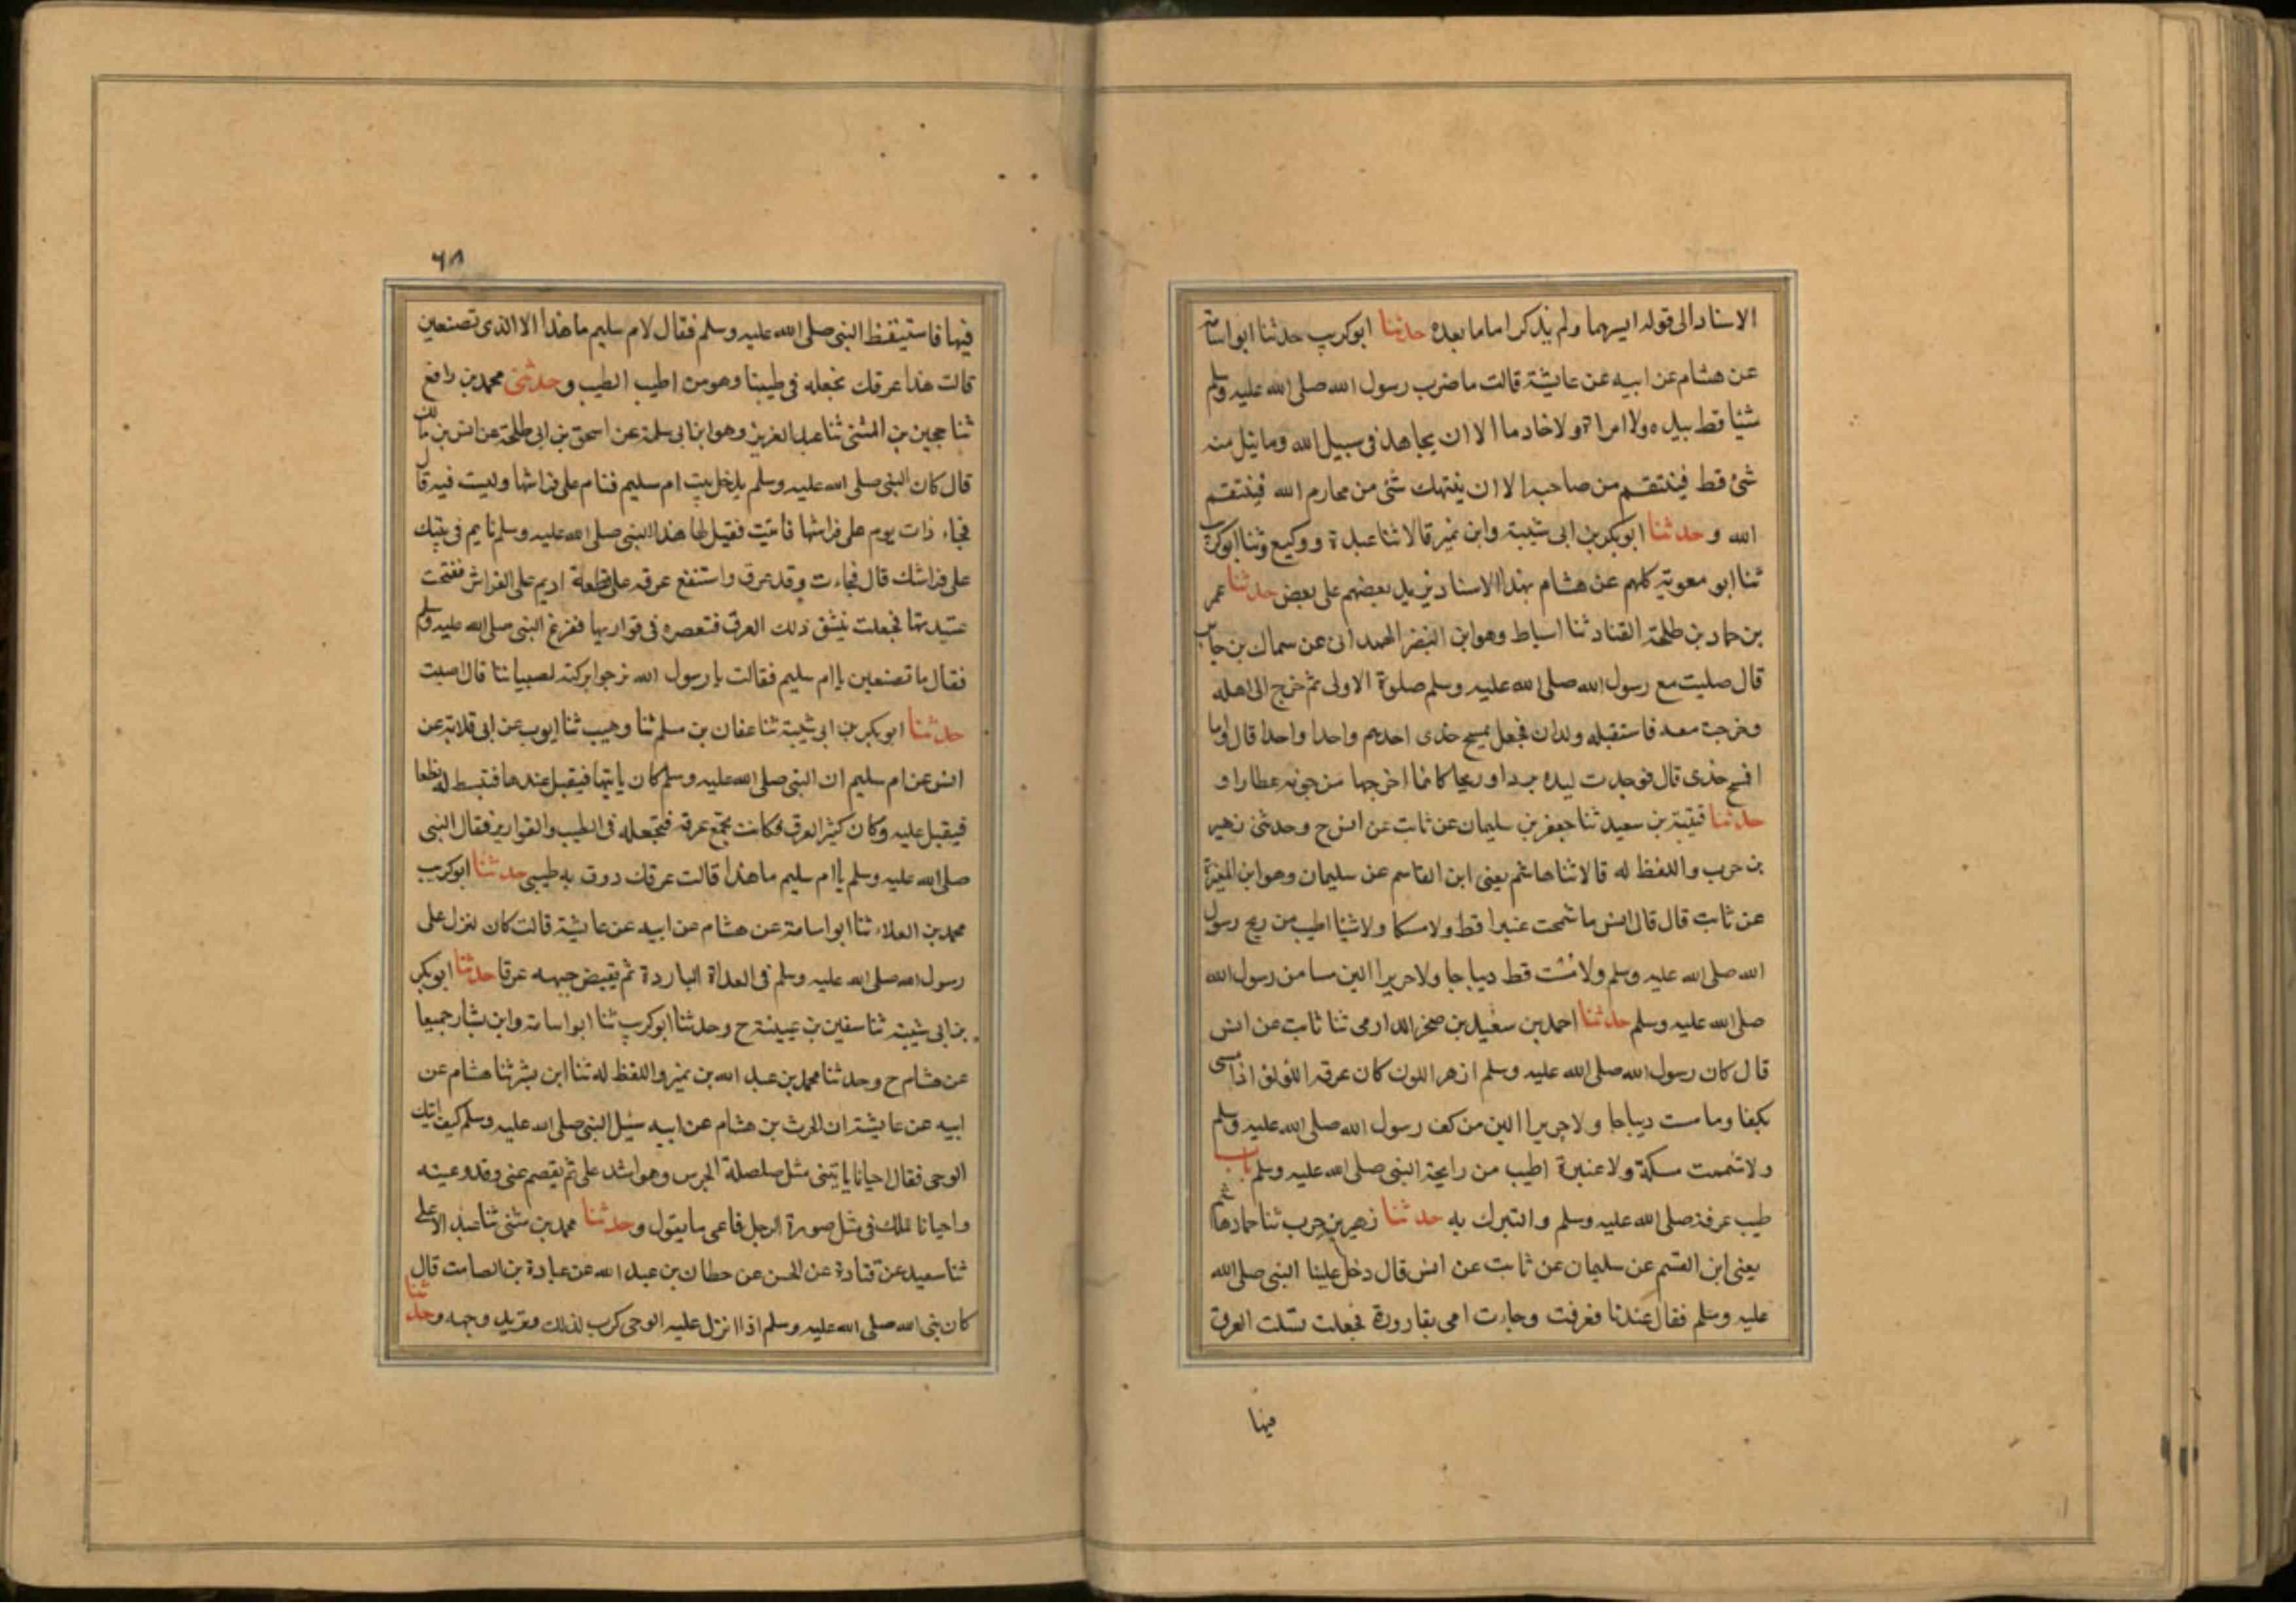 الاسناد الى قوله ايسرهما ولم يذكر اما ما بعده حدثنا ابوكريب حدثنا ابواسامة
عن هشام عن ابيه عن عايشة قالت ما ضرب رسول الله صلى الله عليه وسلم
شيئا قط بيده ولا امراة ولا خادما الا ان يجاهد فى سبيل الله وما نيل منه
شئ قط فينتقم من صاحبه الا ان ينتهك شئ من محارم الله فينتقم
الله وحدثنا ابوبكر بن ابى شيبة وابن نمير قالا ثنا عبدة ووكيع وثنا ابوكريب
ثنا ابو معوية كلهم عن هشام بهذا الاسناد يزيد بعضهم على بعض حدثنا عمر
بن حماد بن طلحة القناد ثنا اسباط وهو ابن النضر الهمدانى عن سماك بن جابر
قال صليت مع رسول الله صلى الله عليه وسلم صلوة الاولى ثم خرج الى اهله
وخرجت معه فاستقبله ولدان فجعل يمسح خدى احدهم واحدا واحدا قال واما
فسح خدى قال فوجدت ليده بردا وريحا كانما اخرجها من جونة عطارا و
حدثنا قتيبة بن سعيد ثنا جعفر بن سليمان عن ثابت عن انس ح وحدثنى زهير
بن حرب واللفظ له قالا ثنا هاشم يعنى ابن القاسم عن سليمان وهو ابن المغيرة
عن ثابت قال قال انس ما شممت عنبرا قط ولا مسكا ولا شيئا اطيب من ريح رسول
الله صلى الله عليه وسلم ولا مست قط ديباجا ولا حريرا الين مسا من رسول الله
صلى الله عليه وسلم حدثنا احمد بن سعيد بن صخر الدارمى ثنا ثابت عن انس
قال كان رسول الله صلى الله عليه وسلم ازهر اللون كان عرقه اللؤلؤ اذا مشى
تكفا وما مست ديباجا ولا حريرا الين من كف رسول الله صلى الله عليه وسلم
ولا شممت مسكة ولا عنبرة اطيب من رايحة النبى صلى الله عليه وسلم باب
طيب عرقه صلى الله عليه وسلم والتبرك به حدثنا زهير بن حرب ثنا حماد هاشم
يعنى ابن القسم عن سليمان عن ثابت عن انس قال دخل علينا النبى صلى الله
عليه وسلم فقال عندنا فعرقت وجاءت امى بقارورة فجعلت تسلت العرق
فيها
٦٨
فيها فاستيقظ النبى صلى الله عليه وسلم فقال لام سليم ما هذا الا الذى تصنعين
قالت هذا عرقك نجعله فى طيبنا وهو من اطيب الطيب وحدثنى محمد بن رافع
ثنا حجين بن المثنى ثنا عبد العزيز وهو ابن ابى سلمة عن اسحق بن ابى طلحة عن انس بن مالك
قال كان النبى صلى الله عليه وسلم يدخل بيت ام سليم فنام على فراشها وليست فيه قال
فجاء ذات يوم على فراشها فاتيت فقيل لها هذا النبى صلى الله عليه وسلم نايم فى بيتك
على فراشك قال فجاءت وقد عرق واستنقع عرقه على قطعة اديم على الفراش ففتحت
عتيدتها فجعلت تنشق ذلك العرق فتعصره فى قواريها ففزع النبى صلى الله عليه وسلم
فقال ما تصنعين يا ام سليم فقالت يا رسول الله نرجوا بركته لصبياننا قال اصبت
حدثنا ابوبكر بن ابى شيبة ثنا عفان بن مسلم ثنا وهيب ثنا ايوب عن ابى قلابة عن
انس عن ام سليم ان النبى صلى الله عليه وسلم كان ياتيها فيقيل عندها فتبسط له نطعا
فيقيل عليه وكان كثير العرق فكانت تجمع عرقه فتجعله فى الطيب والقوارير فقال النبى
صلى الله عليه وسلم يا ام سليم ما هذا قالت عرقك دوف به طيبى حدثنا ابوكريب
محمد بن العلاء ثنا ابو اسامة عن هشام عن ابيه عن عايشة قالت كان لنزل على
رسول الله صلى الله عليه وسلم فى الغداة الباردة ثم يفيض جبهه عرقا حدثنا ابوبكر
بن ابى شيبة ثنا سفين بن عيينة ح وحدثنا ابوكريب ثنا ابو اسامة وابن بشار جميعا
عن هشام ح وحدثنا محمد بن عبد الله بن نمير واللفظ له ثنا ابن بشر ثنا هشام عن
ابيه عن عايشة ان الحرث بن هشام عن ابيه سئل النبى صلى الله عليه وسلم كيف ياتيك
الوحى فقال احيانا ياتينى مثل صلصلة الجرس وهو اشد على ثم يفصم عنى وقد وعيته
واحيانا ملك فى مثل صورة الرجل فاعى ما يقول وحدثنا محمد بن مثنى ثنا عبد الاعلى
ثنا سعيد عن قتادة عن الحسن عن حطان بن عبد الله عن عبادة بن الصامت قال
كان نبى الله صلى الله عليه وسلم اذا انزل عليه الوحى كرب لذلك وتربد وجهه وحدثنا